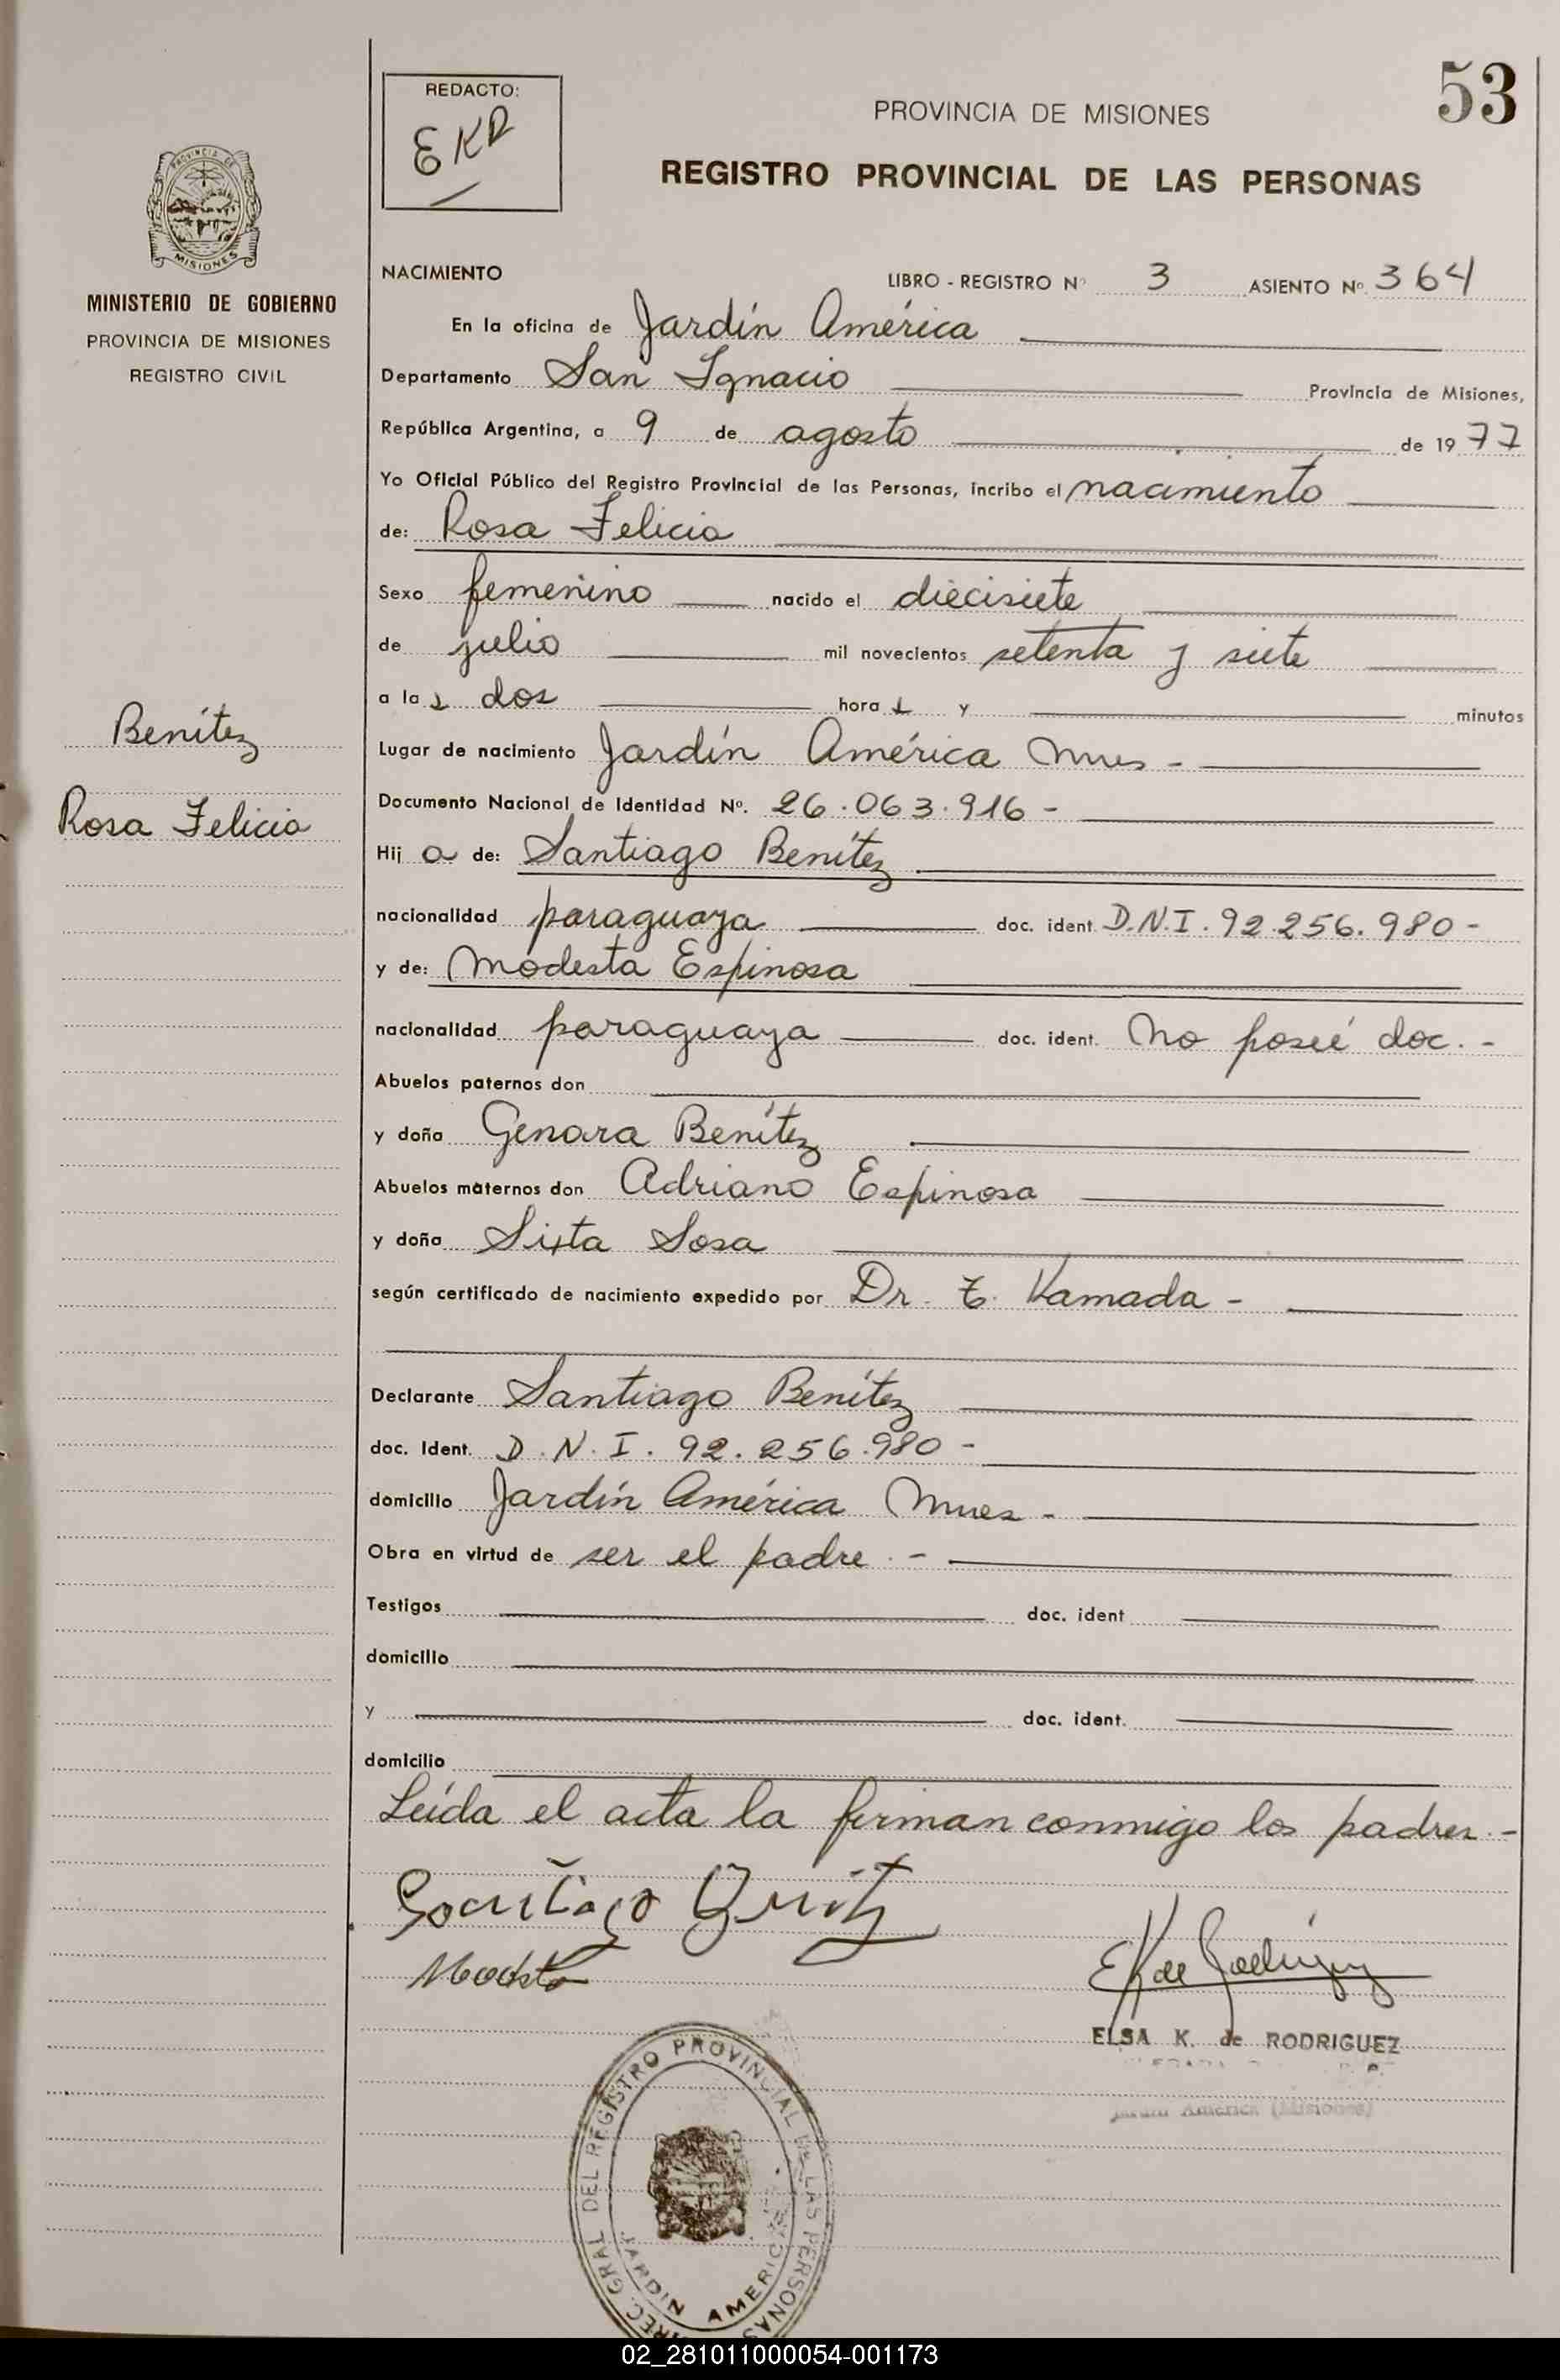 REDACTO:
EKR
PROVINCIA DE MISIONES
53
REGISTRO PROVINCIAL DE LAS PERSONAS
MISIONES
MINISTERIO DE GOBIERNO
PROVINCIA DE MISIONES
REGISTRO CIVIL
Benítez
Rosa Felicia
NACIMIENTO LIBRO - REGISTRO Nº 3 ASIENTO Nº 364
En la oficina de Jardín América
Departamento San Ignacio Provincia de Misiones,
República Argentina, a 9 de agosto de 1977
Yo Oficial Público del Registro Provincial de las Personas, incribo el nacimiento
de: Rosa Felicia
Sexo femenino nacido el diecisiete
de julio mil novecientos setenta y siete
a la s dos hora s y minutos
Lugar de nacimiento Jardín América Mnes -
Documento Nacional de Identidad Nº. 26.063.916 -
Hij a de: Santiago Benítez
nacionalidad paraguaya doc. ident. D.N.I. 92.256.980 -
y de: Modesta Espinosa
nacionalidad paraguaya doc. ident. no posée doc. -
Abuelos paternos don
y doña Genara Benítez
Abuelos maternos don Adriano Espinosa
y doña Sixta Sosa
según certificado de nacimiento expedido por Dr. T. Kamada -
Declarante Santiago Benítez
doc. Ident. D.N.I. 92.256.980 -
domicilio Jardín América Mnes -
Obra en virtud de ser el padre. -
Testigos doc. ident
domicilio
y doc. ident.
domicilio
Leída el acta la firman conmigo los padres. -
Santiago Benitz
Modesta
EK de Rodriguez
ELSA K. de RODRIGUEZ
Jardín América (Misiones)
DIREC. GRAL DEL REGISTRO PROVINCIAL DE LAS PERSONAS
JARDIN AMERICA
02_281011000054-001173